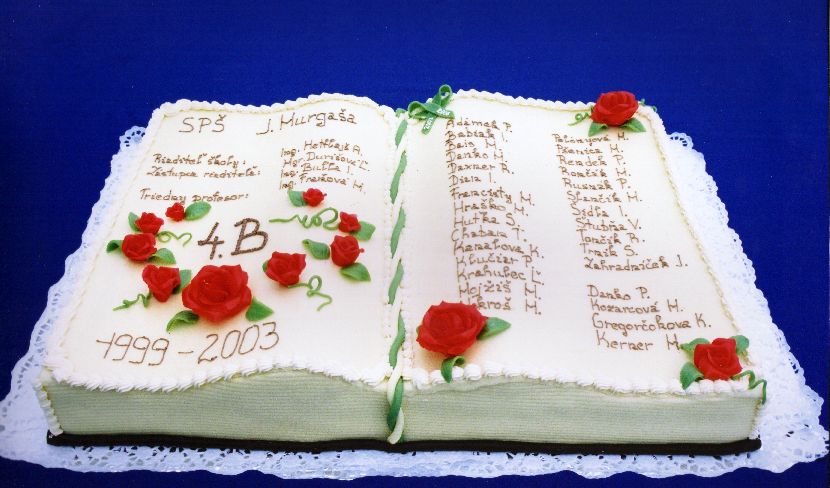 SPŠ J. Murgaša
Riaditeľ školy: Ing. Hettlajš A.
Zástupca riaditeľa: Mgr. Durišová L.
Ing. Bulla I.
Triedny profesor: Ing. Frajšová M.
4.B
1999-2003
Adámek P.
Babiak I.
Bajs M.
Danko M.
Daxner R.
Franciaty M.
Hraško M.
Hutka S.
Chaban T.
Kanabova K.
Kľučiar P.
Krahulec Ľ.
Mojžiš M.
Pšenica M.
Rendek P.
Rončák M.
Rusnák P.
Slančík M.
Sojka I.
Stubňa V.
Tomčík R.
Trnik S.
Zahradníček J.
Danko P.
Kozárcová M.
Gregorčokova K.
Kerner M.